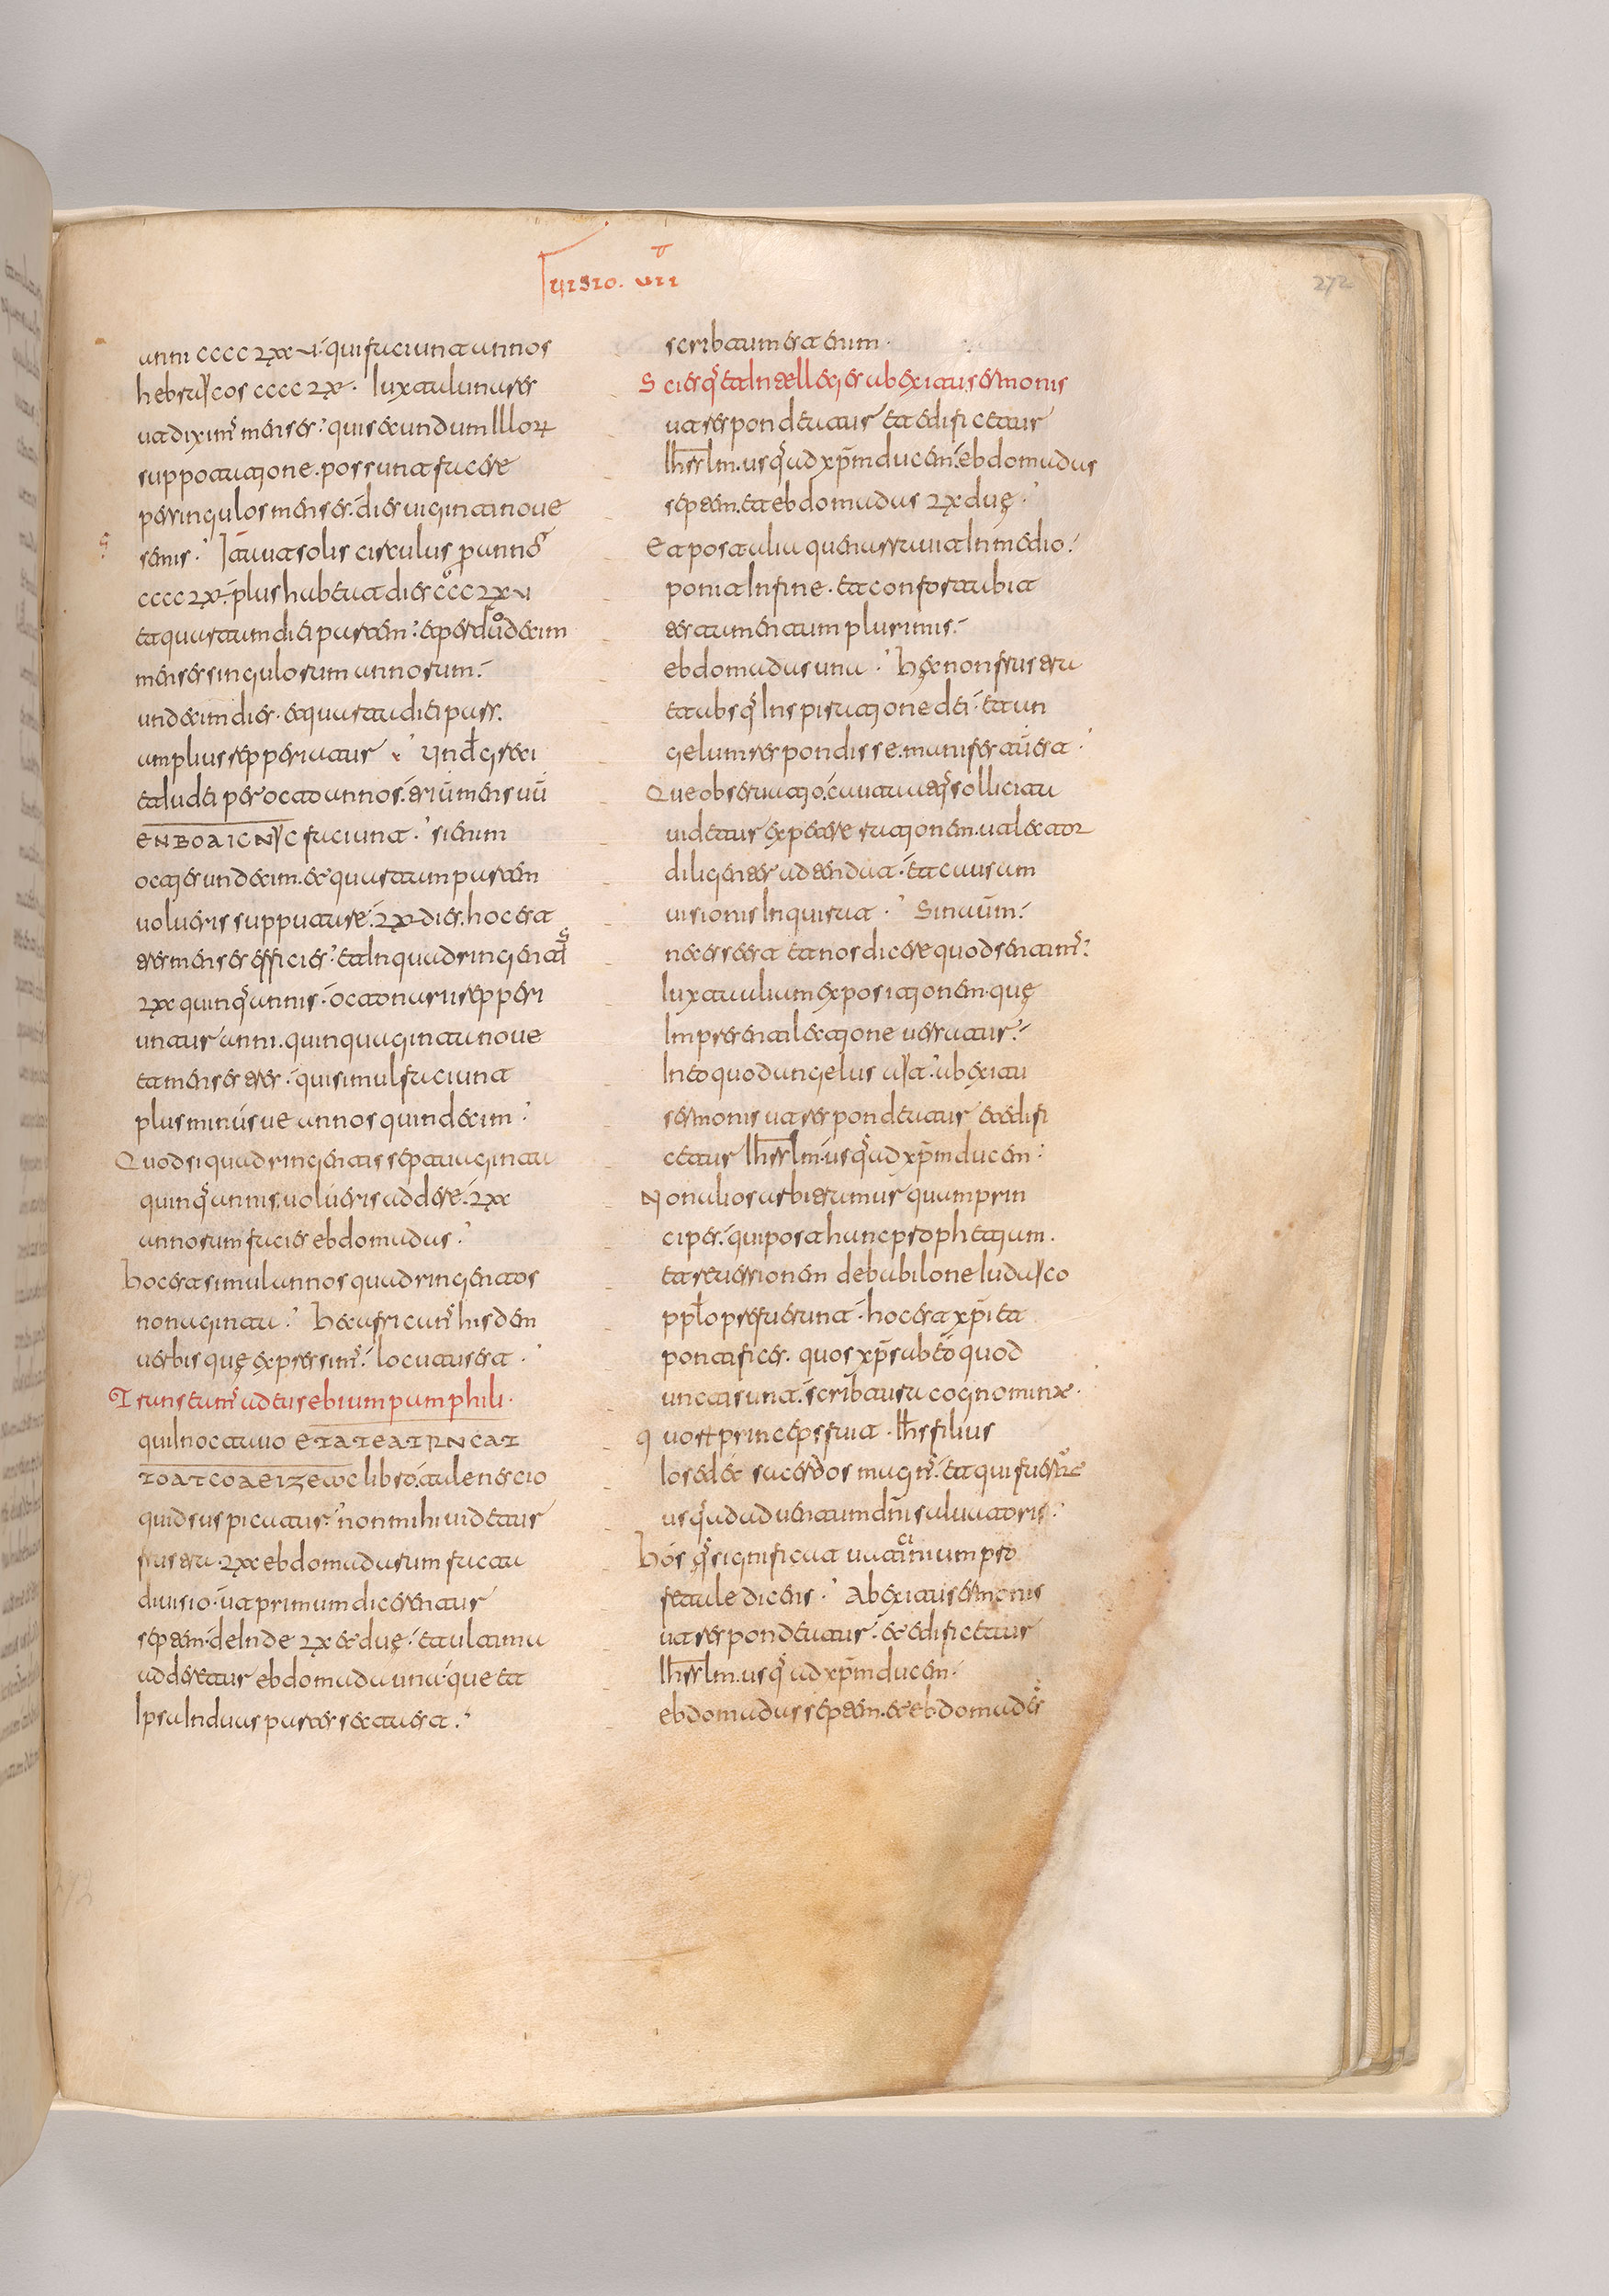 Uisio. VII
272
anni cccc lxx v. qui faciunt annos
hebraycos cccc lx. Iuxta lunares
ut diximꝰ menses. qui secundum Illoꝝ
supputatjone. possunt facere
per singulos menses. dies uiginti noue
semis. Itaut solis circulus ꝑ annos
cccc lx. plus habeat dies ccc lxv
et quartam diei partem. et per duodecim
menses singulorum annorum.
undecim dies. et quarta diei pars.
amplius repperiatur Und greci
et Iudei per octo annos. trium mensuum
ENBOAICNyC faciunt. si enim
octjes undecim. et quartam partem
uolueris suppuatare. lx dies. hoc est
tres menses efficies. et In quadringentis
lxx quinqꝰ annis. octonarii repperi
untur anni. quinquaginta noue
et menses tres. qui simul faciunt
plus minusue annos quindecim
Quod si quadringentis septuaginta
quinqꝰ annis. uolueris addere. lxx
annorum facies ebdomadas.
hoc est simul annos quadringentos
nonaginta. hec africanꝰ hisdem
uerbis que expressimꝰ. locutus est.
Transeamꝰ ad eusebium pamphili.
qui In octauo ETATEATRNCAT
TOATCOAEIZEωC libro. tale nescio
quid suspicatur. non mihi uidetur
frustra. lxx ebdomadarum facta
diuisio. ut primum dicerentur
septem. deInde lx et due. et ultima
adderetur ebdomada una. que et
Ipsa In duas partes secta est.
scribtum est enim.
Scies qꝰ et Intelleges ab exitu sermonis
ut respondeatur et edificetur
Ihrslm. usqꝰ ad xpm ducem. ebdomadas
septem. et ebdomadas lx due.
Et post alia que narrauit In medio.
ponit In fine. et confortabit
testamentum plurimis.
ebdomadas una. hec non frustra
et absqꝰ Inspiratjone dei. et an
gelum respondisse. manifestum est.
Que obseruatjo. cauta utqꝰ sollicita
uidetur expetere ratjonem. ut lector
diligenter adtendat. et causam
uisionis Inquirat. Sin autem.
necesse est et nos dicere quod sentimꝰ.
Iuxta aliam expositjonem. que
In presenti lectjone uersatur.
In eo quod angelus ayt. ab exitu
sermonis ut respondeatur et edifi
cetur Ihrslm. usqꝰ ad xpm ducem.
Non alios arbitramur quam prin
cipes. qui post hanc prophetjam.
et reuersionem de babilone Iudayco
pplo prefuerunt. hoc est xpi et
pontifices. quos xps ab eo quod
uncti sunt. scribtura cognominat.
Quorꝝ princeps fuit. Ihs filius
Iosedec sacerdos magnꝰ. et qui fuerunt
usqꝰ ad aduentum dni saluatoris.
hos qꝰ significat uaticinium pro
fetale dicens. Ab exitu sermonis
ut respondeatur. et edificetur
Ihrslm. usqꝰ ad xpm ducem.
ebdomadas septem. et ebdomades